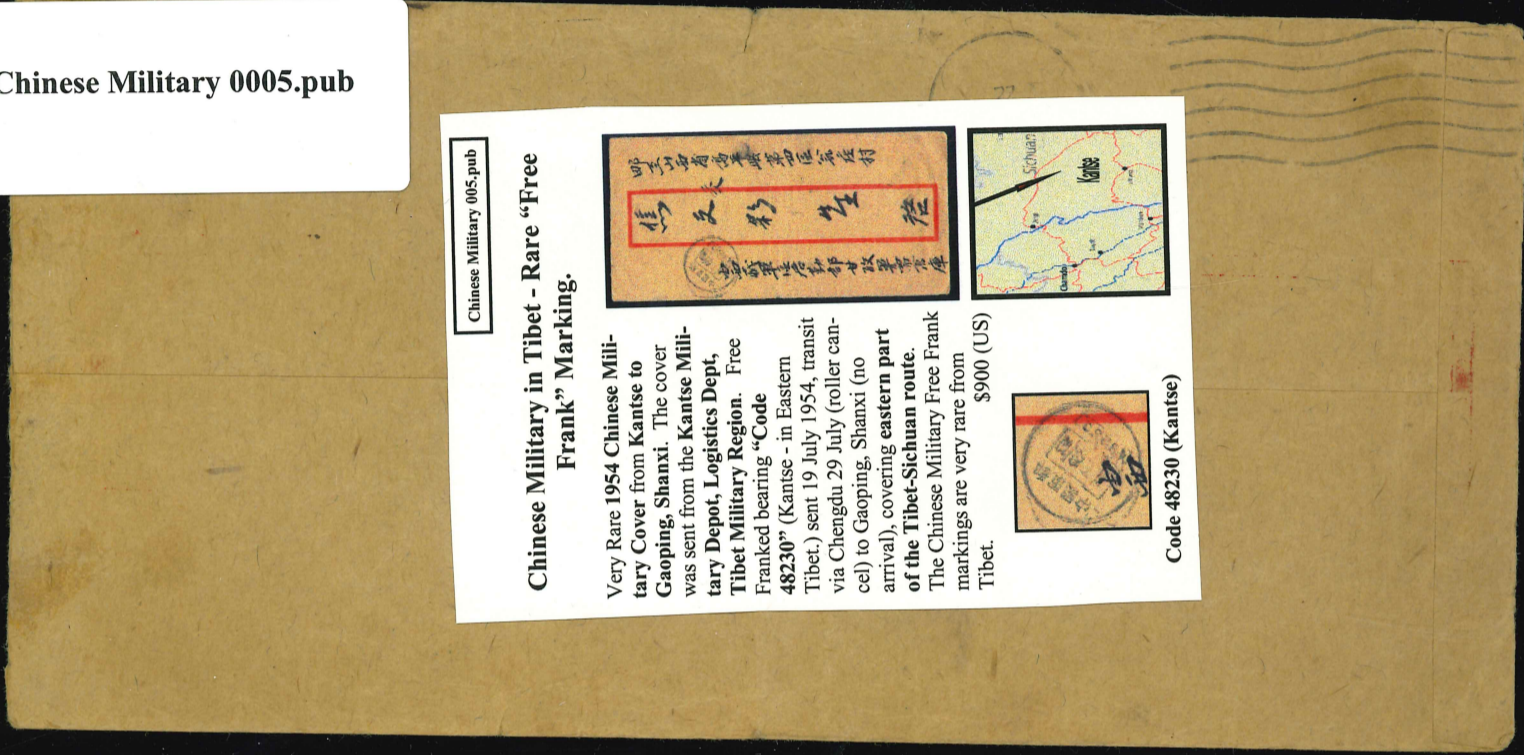 Chinese Military 0005.pub
Chinese Military 005.pub
Chinese Military in Tibet - Rare “Free
Frank” Marking.
Very Rare 1954 Chinese Mili-
tary Cover from Kantse to
Gaoping, Shanxi. The cover
was sent from the Kantse Mili-
tary Depot, Logistics Dept,
Tibet Military Region. Free
Franked bearing “Code
48230” (Kantse - in Eastern
Tibet.) sent 19 July 1954, transit
via Chengdu 29 July (roller can-
cel) to Gaoping, Shanxi (no
arrival), covering eastern part
of the Tibet-Sichuan route.
The Chinese Military Free Frank
markings are very rare from
Tibet. $900 (US)
山西省高平
第四区
村
Sichuan
Kantse
Code 48230 (Kantse)